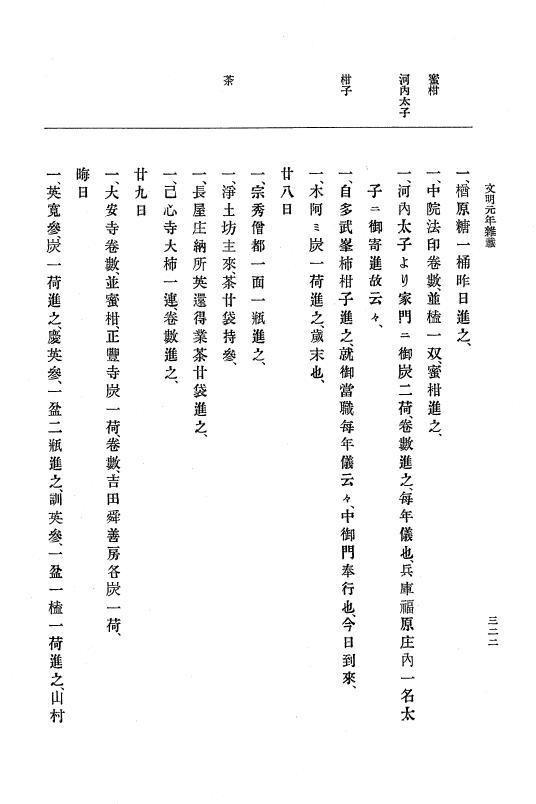 文明元年雜載
三二二
蜜柑
河內太子
柑子
茶
一、楢原糖一桶昨日進之、
一、中院法印卷數、並𣜌一双、蜜柑進之、
一、河內太子より家門ニ御炭二荷、卷數進之、每年儀也、兵庫福原庄內一名太
子ニ御寄進故云々、
一、自多武峯柿柑子進之、就御當職每年儀云々、中御門奉行也、今日到來、
一、木阿ミ炭一荷進之、歲末也、
廿八日
一、宗秀僧都一面一瓶進之、
一、淨土坊主來茶廿袋持參、
一、長屋庄納所英還得業茶廿袋進之、
一、己心寺大柿一連、卷數進之、
廿九日
一、大安寺卷數、並蜜柑、正豐寺炭一荷、卷數、吉田舜善房各炭一荷、
晦日
一、英寬參、炭一荷進之、慶英參、一盆二瓶進之、訓英參、一盆一𣜌一荷進之、山村